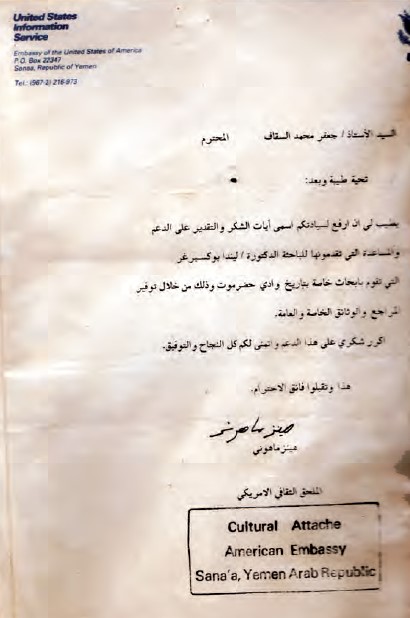 United States
Information
Service
Embassy of the United States of America
P.O. Box 22347
Sana, Republic of Yemen
Tel.: (967-2) 216-973
السيد الأستاذ / جعفر محمد السقاف المحترم
تحية طيبة وبعد:
يطيب لي ان ارفع لسيادتكم اسمى آيات الشكر والتقدير على الدعم
والمساعدة التي تقدمونها للباحثة الدكتورة / ليندا بوكسبرغر
التي تقوم بابحاث خاصة بتاريخ وادي حضرموت وذلك من خلال توفير
المراجع والوثائق الخاصة والعامة.
اكرر شكري على هذا الدعم واتمنى لكم كل النجاح والتوفيق.
هذا وتقبلوا فائق الاحترام.
هينز ماهوني
الملحق الثقافي الامريكي
Cultural Attache
American Embassy
Sana'a, Yemen Arab Republic